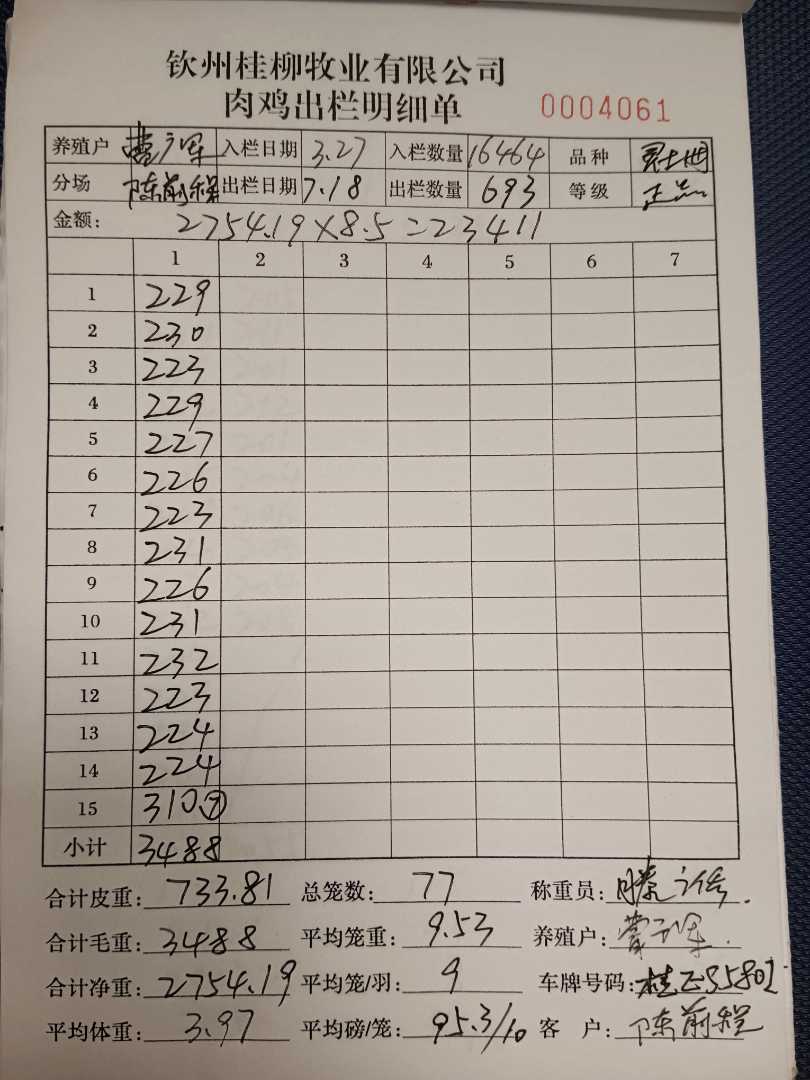 钦州桂柳牧业有限公司
肉鸡出栏明细单 0004061
养殖户 入栏日期 3.27 入栏数量 16464 品种
分场 陈前程 出栏日期 7.18 出栏数量 693 等级 正品
金额: 2754.19×8.5=23411
1 2 3 4 5 6 7
1 229
2 230
3 223
4 229
5 227
6 226
7 223
8 231
9 226
10 231
11 232
12 223
13 224
14 224
15 310.⑦
小计 3488
合计皮重: 733.81 总笼数: 77 称重员:
合计毛重: 3488 平均笼重: 9.53 养殖户:
合计净重: 2754.19 平均笼/羽: 9 车牌号码:
平均体重: 3.97 平均磅/笼: 95.3/10 客 户: 陈前程